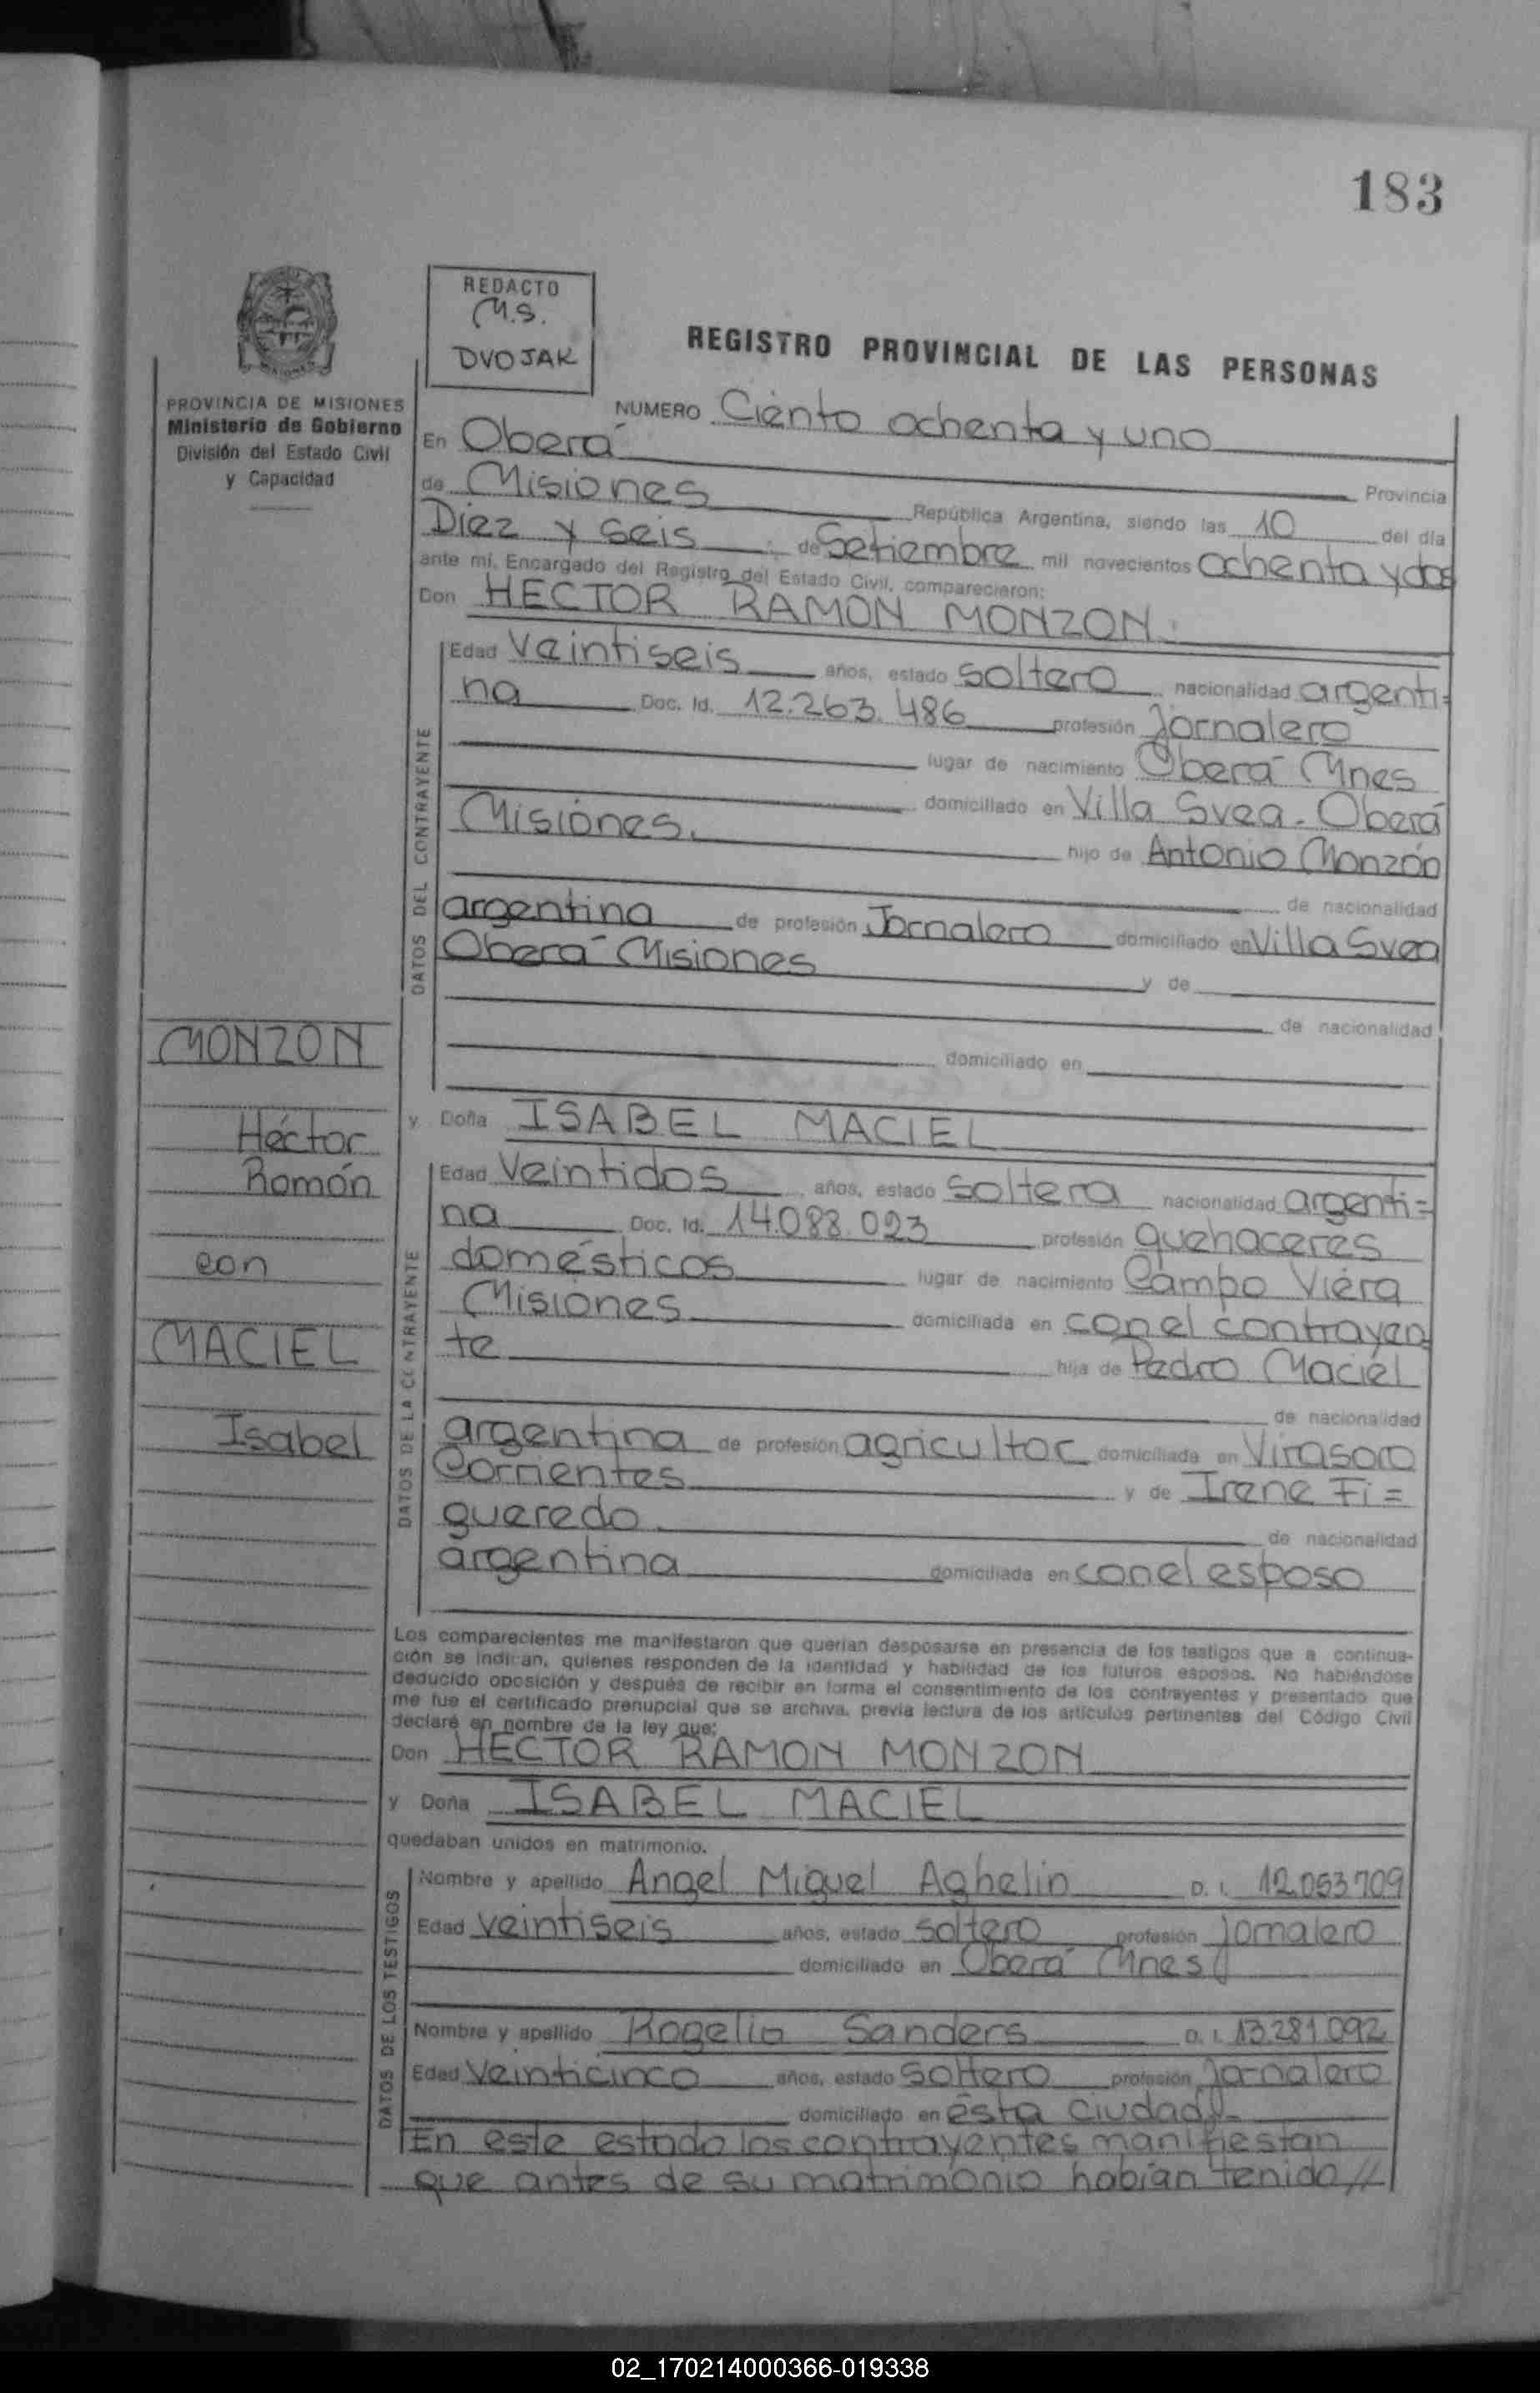 183
REDACTO
M.S.
DVOJAK
REGISTRO PROVINCIAL DE LAS PERSONAS
PROVINCIA DE MISIONES
Ministerio de Gobierno
División del Estado Civil
y Capacidad
NUMERO Ciento ochenta y uno
En Oberá
de Misiones Provincia
República Argentina, siendo las 10 del día
Diez y seis de Setiembre mil novecientos ochenta y dos
ante mí, Encargado del Registro del Estado Civil, comparecieron:
Don HECTOR RAMON MONZON
DATOS DEL CONTRAYENTE
Edad Veintiseis años, estado soltero nacionalidad argenti=
na Doc. Id. 12.263.486 profesión Jornalero
lugar de nacimiento Oberá Mnes
domiciliado en Villa Svea - Oberá
Misiones. hijo de Antonio Monzón
de nacionalidad
argentina de profesión Jornalero domiciliado en Villa Svea
Oberá Misiones y de
de nacionalidad
domiciliado en
MONZON
Héctor
Ramón
con
MACIEL
Isabel
y Doña ISABEL MACIEL
DATOS DE LA CONTRAYENTE
Edad Veintidos años, estado soltera nacionalidad argenti=
na Doc. Id. 14.088.023 profesión quehaceres
domésticos lugar de nacimiento Campo Viera
Misiones domiciliada en con el contrayen
te hija de Pedro Maciel
de nacionalidad
argentina de profesión agricultor domiciliada en Virasoro
Corrientes y de Irene Fi=
gueredo. de nacionalidad
argentina domiciliada en con el esposo
Los comparecientes me manifestaron que querían desposarse en presencia de los testigos que a continua-
ción se indican, quienes responden de la identidad y habilidad de los futuros esposos. No habiéndose
deducido oposición y después de recibir en forma el consentimiento de los contrayentes y presentado que
me fue el certificado prenupcial que se archiva, previa lectura de los artículos pertinentes del Código Civil
declaré en nombre de la ley que:
Don HECTOR RAMON MONZON
y Doña ISABEL MACIEL
quedaban unidos en matrimonio.
DATOS DE LOS TESTIGOS
Nombre y apellido Angel Miguel Aghelin D. I. 12.053709
Edad veintiseis años, estado soltero profesión jornalero
domiciliado en Oberá Mnes
Nombre y apellido Rogelio Sanders D. I. 13.281.092
Edad Veinticinco años, estado soltero profesión Jornalero
domiciliado en ésta ciudad
En este estado los contrayentes manifiestan
que antes de su matrimonio habían tenido //
02_170214000366-019338